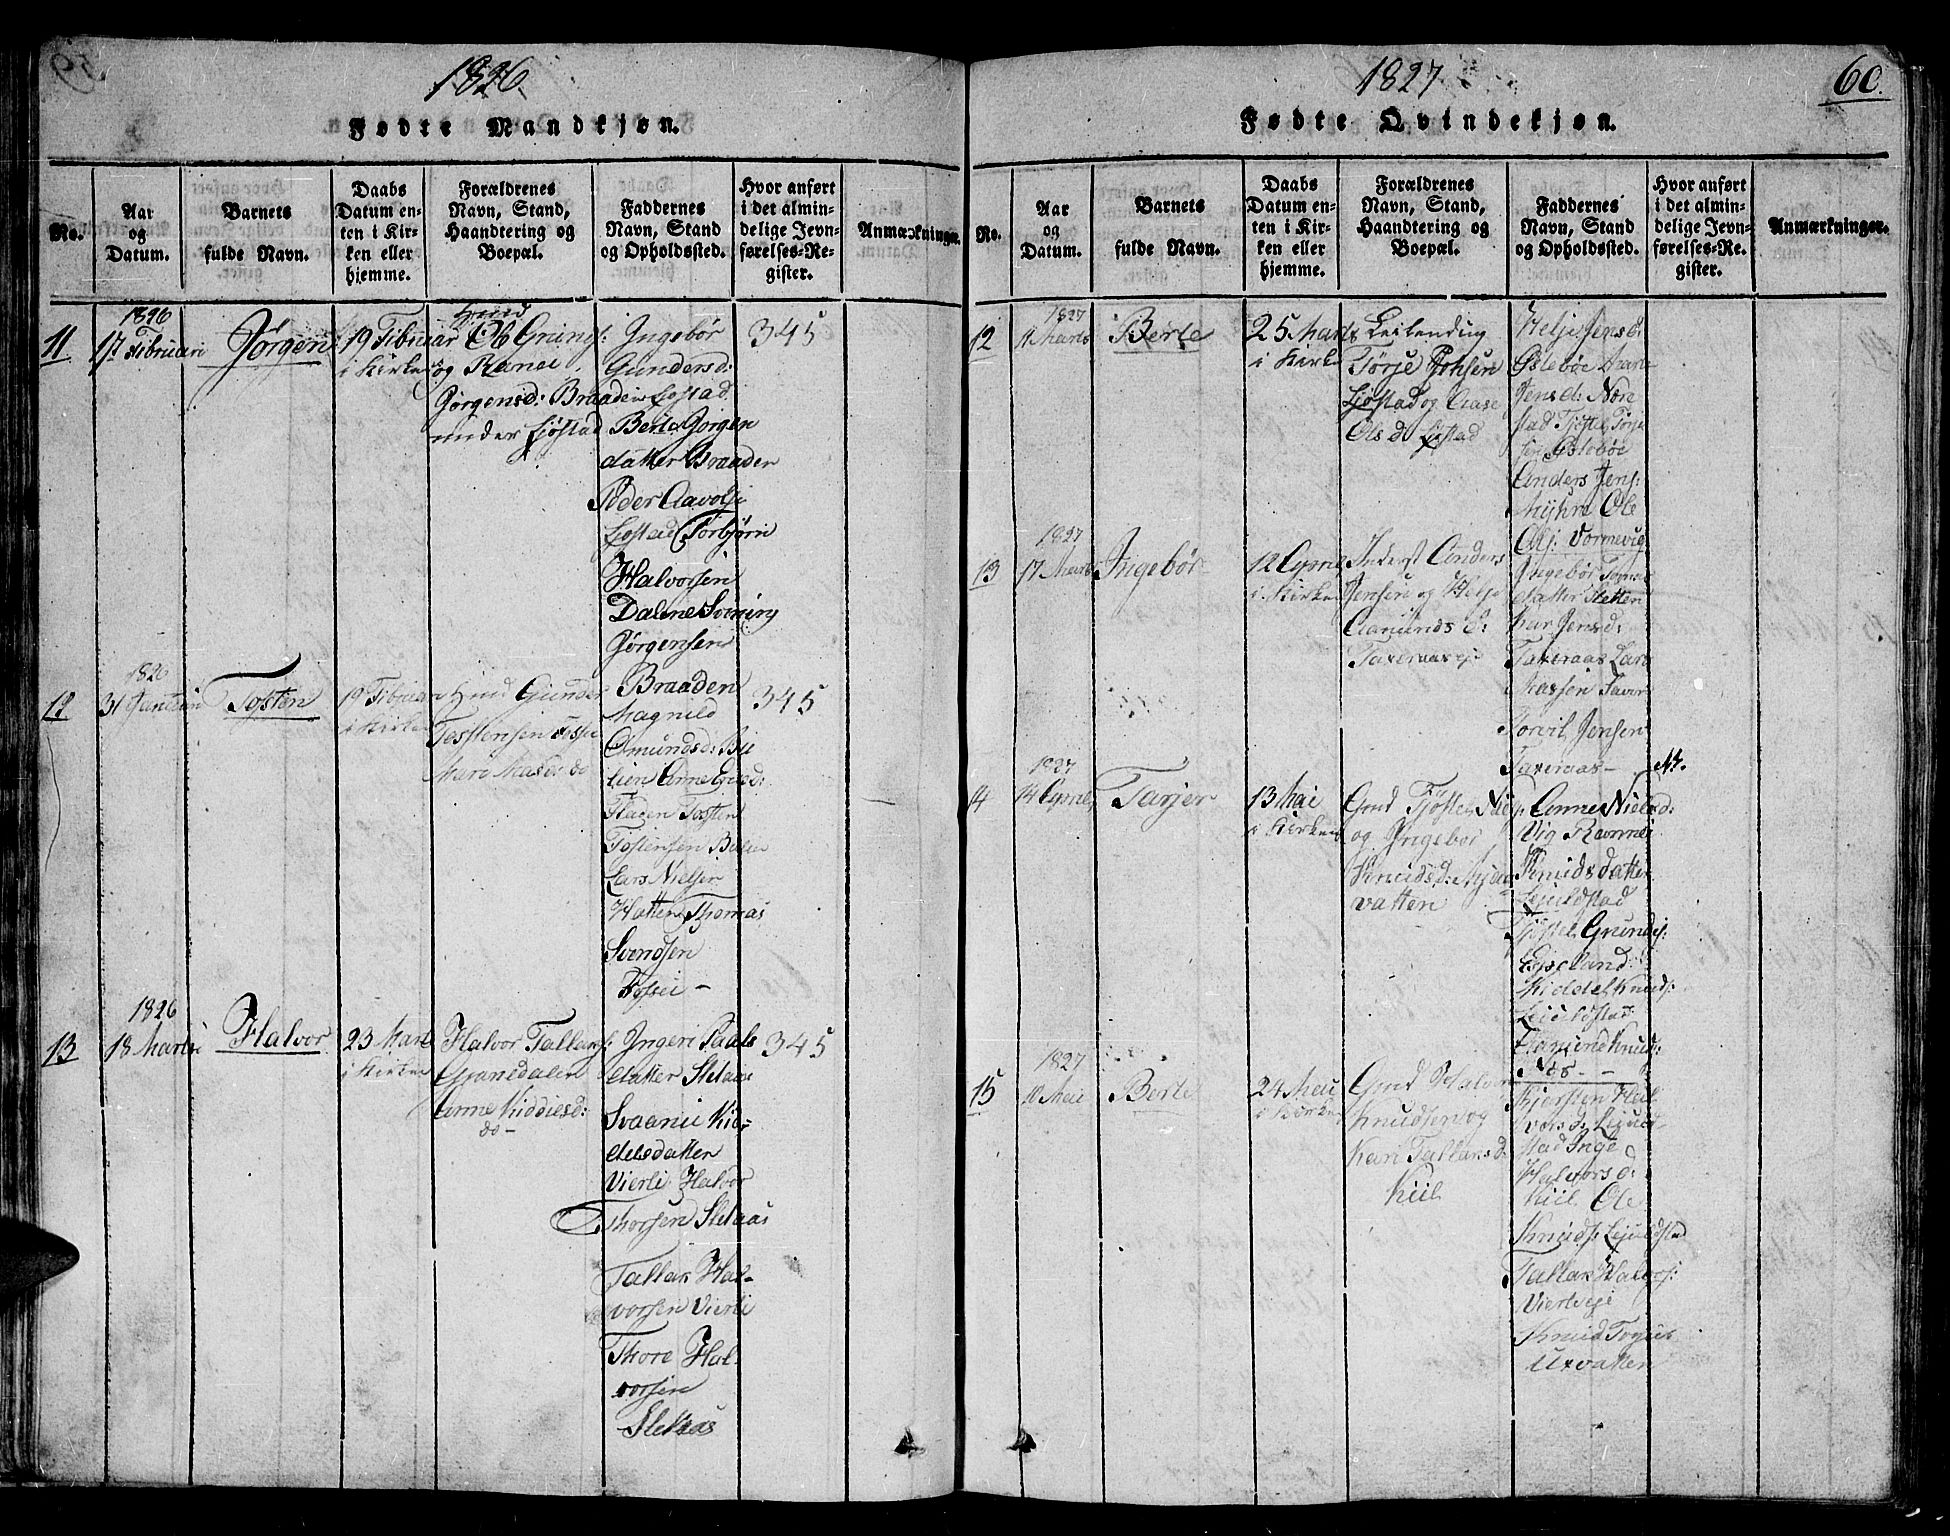 1826
Fødte Mandkjøn.
No.
Aar
og
Datum.
Barnets
fulde Navn.
Daabs
Datum en-
ten i Kir-
ken eller
hjemme.
Forældrenes
Navn, Stand,
Haandtering og
Boepæl.
Faddernes
Navn, Stand
og Opholdssted.
Hvor anført
i det almin-
delige Jevn-
førelses-Re-
gister.
Anmærkninger.
11
1826
17 Februari
Jørgen
19 Februar
i Kirken
Huusd
Ole Grunds:
og Ranei
Gørgensd: Braaden
under Ljøstad
Ingebør
Gundersd:
Ljostad
Berte Gørgen
datter Braaden
Peder Aavolsj
Ljostad Torbjørn
Halvorsen
Dalene Svining
Jørgensen
Braaden
345
12
1826
31 Januari
Tosten
19 Februari
i Kirken
Huusd Gunder
Tostensen Fossei
Mari Madsd do
Magnild
Omundsd: Bie
lien Anne Eved:
Fladen Tosten
Tostensen Bielien
Lars Nielsen
Hatten Thomas
Svendsen
Fossei –
345
13
1826
18 Martii
Halvor
23 Mart
i Kirken
Halvor Tallags:
Granedalen
Anne Kiddelsd:
do –
Ingeri Paals
datter Slelaas
Svaanie Kid-
delsdatter
Vierli Halvor
Thorsen Slelaas
Tallax Hal-
vorsen Vierli
Thore Hal-
vorsen
Slelaas
345
1827
60.
Fødte Qvindekjøn.
No.
Aar
og
Datum.
Barnets
fulde Navn.
Daabs
Datum en-
ten i Kir-
ken eller
hjemme.
Forældrenes
Navn, Stand,
Haandtering og
Boepæl.
Faddernes
Navn, Stand
og Opholdssted.
Hvor anført
i det almin-
delige Jevn-
førelses-Re-
gister.
Anmærkninger.
12
1827
11 Marts
Berte
25 Marts
i Kirken
Leilending
Tørje Johsen
Ljøstad og Aase
Ols d: Ljøstad
Helje Jensd:
Gslebøe
Jensd: Nore
stad Tjøstel Tørje
sen Gslebøe
Anders Jens:
Myhre Ole
Ols: Vormevig
13
1827
17 Marts
Ingebør
12 Apriel
i Kirken
Inderst Anders
Jensen og Helje
Aamunds d:
Taxeraasej
Ingebør
datter Sletten
Kari Jensd:
Taxeraas Lars
Massen
Torvil Jensen
Taxeraas –
14
1827
14 Apriel
Tarjer
13 Mai
i Kirken
Gmd Tjøstel Niels:
og Ingebor
Knudsd:
vatten
Anne Nielsd:
Vig Ravnei
Knuds datter
Lejuldstad
Tjøstel Grunds:
Espeland:
Kiddel Knuds:
Lejuldstad
Aamund Knud:
Næs – –
15
1827
10 Mai
Berte
24 Mai
i Kirken
Gmd Halvor
Knudsen og
Kari Tallaxs d.
Kiil
Kjersten Hal
vorsd: Lejuld
stad Inge
Halvors d:
Kiil Ole
Knuds: Lejuldstad
Tallax Halvors:
Vierlieje
Knud
Uxvatten